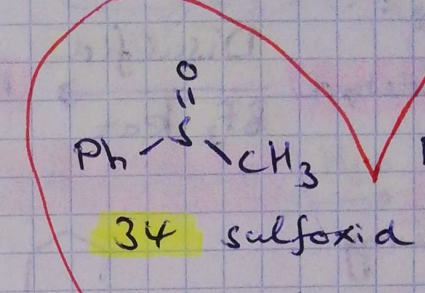 O
Ph S CH3
34 sulfoxid